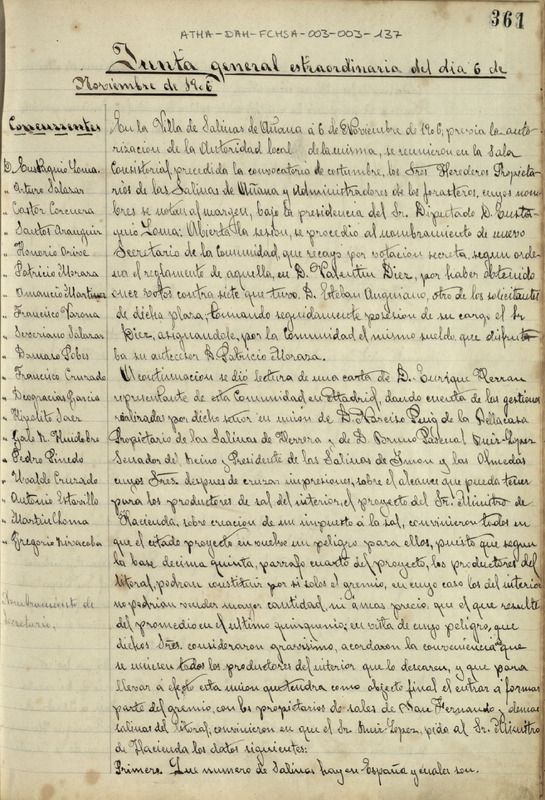 361
ATHA-DAH-FCHSA-003-003-137
Junta general estraordinaria del dia 6 de
Noviembre de 1906
Concurrentes
D. Eustaquio Loma
" Arturo Salazar
" Castor Corcuera
" Santos Aranguiz
" Honorio Orive
" Patricio Moraza
" Amancio Martinez
" Francisco Varona
" Severiano Salazar
" Damaso Pobes
" Francisco Cruzado
" Deogracias Garcia
" Hipolito Saez
" Pedro Pinedo
" Ubaldo Cruzado
" Antonio Estavillo
" Martin Choma
" Gregorio Nivacoba
Nombramiento de
Secretario.
En la Villa de Salinas de Añana á 6 de Noviembre de 1906, previa la auto-
rizacion de la Autoridad local de la misma, se reunieron en la Sala
Consistorial, precedida la convocatoria de costumbre, los Sres Herederos Propieta-
rios de las Salinas de Añana y Administradores de los forasteros, cuyos nom-
bres se notan al margen, bajo la presidencia del Sr. Diputado D. Eusta-
quio Loma: Abierta la sesion, se procedió al nombramiento de nuevo
Secretario de la Comunidad, que recayo por votacion secreta, segun orde-
na el reglamento de aquella, en D. Valentin Diez, por haber obtenido
once votos contra siete que tuvo D. Esteban Anguiano, otro de los solicitantes
de dicha plaza; tomando seguidamente posesion de su cargo el Sr
Diez, asignandole, por la Comunidad el mismo sueldo que disfruta-
ba su antecesor D. Patricio Moraza.
A continuacion se dió lectura de una carta de D. Enrique Herran
representante de esta Comunidad en Madrid, dando cuenta de las gestiones
realizadas por dicho señor en union de D. Narciso Puig de la Bellacasa
Propietario de las Salinas de Herrera y de D. Bruno Pascual Ruiz-Lopez
Senador del Reino y Presidente de las Salinas de Imon y las Olmedas
cuyos Sres. despues de cruzar impresiones, sobre el alcance que pueda tener
para los productores de sal del interior, el proyecto del Sr. Ministro de
Hacienda, sobre creacion de un impuesto á la sal, convinieron todos en
que el citado proyecto envuelve un peligro para ellos, puesto que segun
la base decima quinta, parrafo cuarto del proyecto, los productores del
litoral, podran constituir por si solos el gremio, en cuyo caso los del interior
no podrian vender mayor cantidad ni á mas precio, que el que resulte
del promedio en el ultimo quinquenio; en vista de cuyo peligro, que
dichos Sres. consideraron gravisimo, acordaron la conveniencia que
se uniesen todos los productores del interior que lo desearen, y que para
llevar á efecto esta union que tendra como objecto final el entrar á formar
parte del gremio, con los propietarios de sales de San Fernando y demas
salinas del litoral, convinieron en que el Sr. Ruiz-Lopez, pida al Sr. Ministro
de Hacienda los datos siguientes:
Primero. Que numero de Salinas hay en España y cuales son.